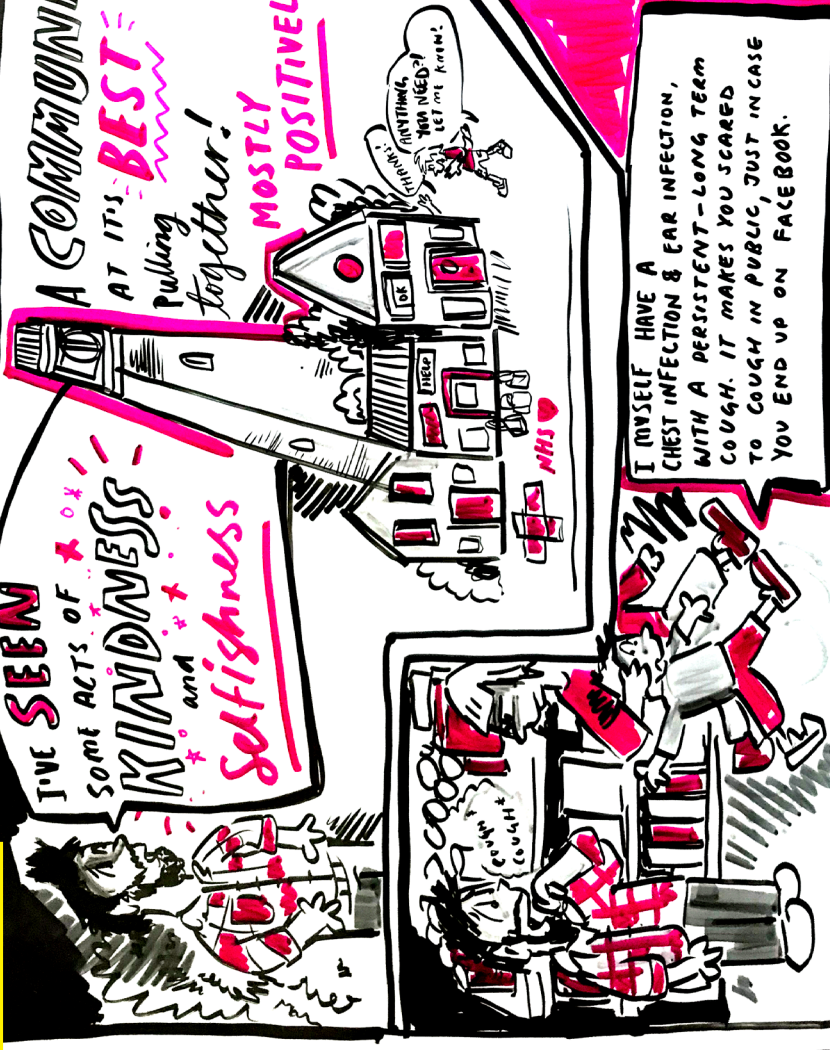 I'VE SEEN
SOME ACTS OF
KINDNESS
and
Selfishness
A COMMUNI
AT IT'S BEST
Pulling
together!
MOSTLY
POSITIVE
THANKS!
ANYTHING
YOU NEED?!
LET ME KNOW!
OK
HELP
NHS
*COUGH
COUGH*
I MYSELF HAVE A
CHEST INFECTION & EAR INFECTION,
WITH A PERSISTENT-LONG TERM
COUGH. IT MAKES YOU SCARED
TO COUGH IN PUBLIC, JUST IN CASE
YOU END UP ON FACEBOOK.